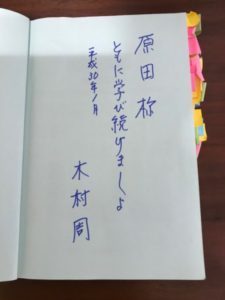 原田 様
ともに学び続けましょ
平成30年1月
木村周